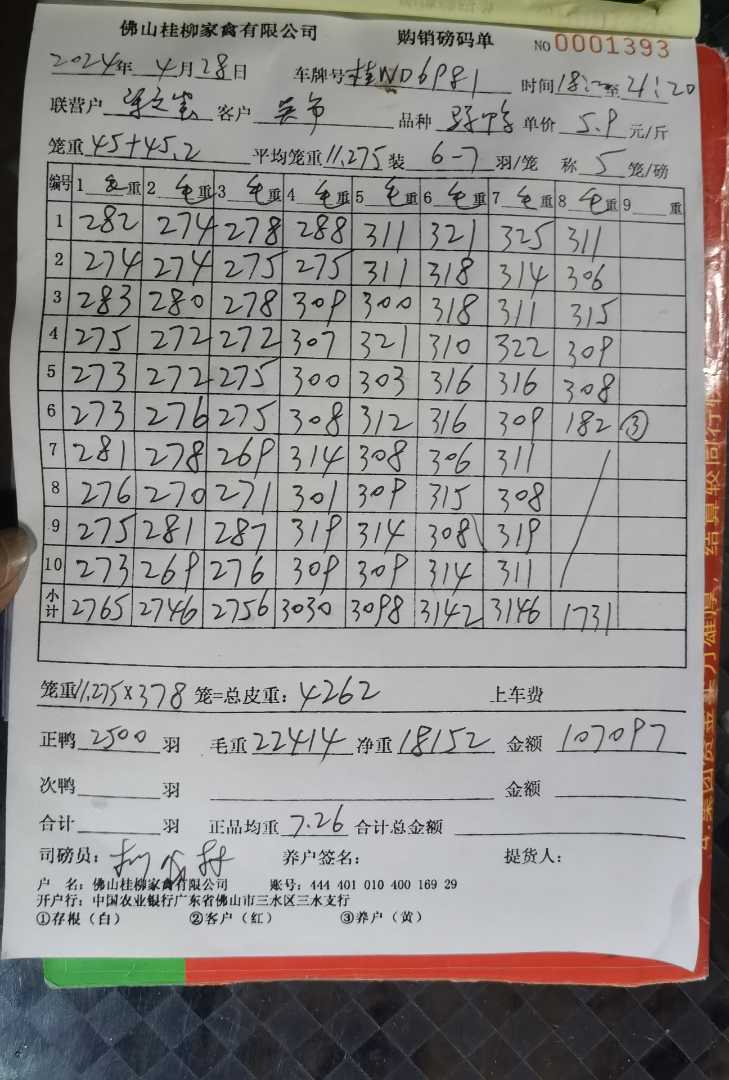 佛山桂柳家禽有限公司 购销磅码单 NO 0001393
2024年 4月28日 车牌号 桂ND6981 时间18: 至 21:20
联营户 客户 品种 单价 5.9 元/斤
笼重 45+45.2 平均笼重 11.275 装 6-7 羽/笼 称 5 笼/磅
编号 1 毛重 2 毛重 3 毛重 4 毛重 5 毛重 6 毛重 7 毛重 8 毛重 9 重
1 282 274 278 288 311 321 325 311
2 274 274 275 275 311 318 314 306
3 283 280 278 309 300 318 311 315
4 275 272 272 307 321 310 322 309
5 273 272 275 300 303 316 316 308
6 273 276 275 308 312 316 309 182 ③
7 281 278 269 314 308 306 311
8 276 270 271 301 309 315 308
9 275 281 287 319 314 308 319
10 273 269 276 309 309 314 311
小计 2765 2746 2756 3030 3098 3142 3146 1731
笼重 11.275×378 笼=总皮重: 4262 上车费
正鸭 2500 羽 毛重 22414 净重 18152 金额 107097
次鸭 羽 金额
合计 羽 正品均重 7.26 合计总金额
司磅员: 养户签名: 提货人:
户 名: 佛山桂柳家禽有限公司 账号: 444 401 010 400 169 29
开户行: 中国农业银行广东省佛山市三水区三水支行
①存根（白） ②客户（红） ③养户（黄）